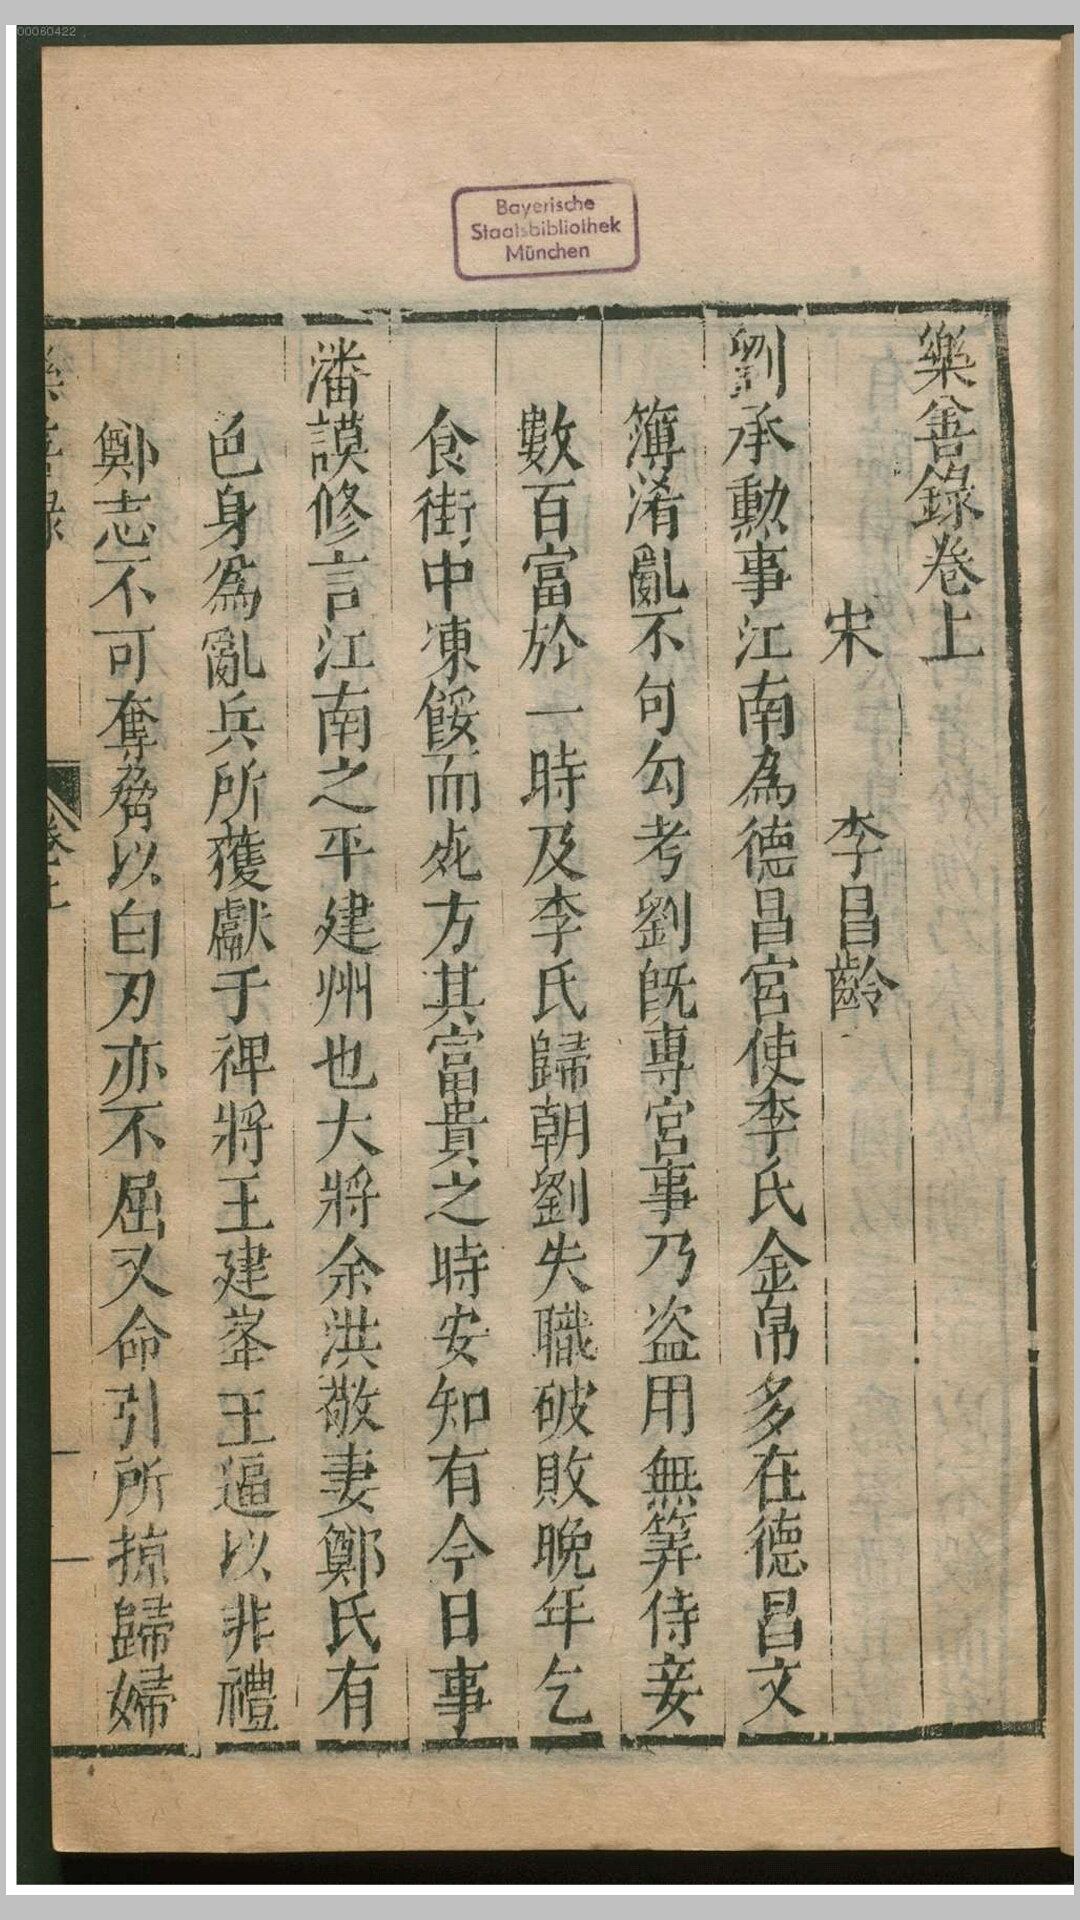 00060422
Bayerische
Staatsbibliothek
München
樂善錄卷上
宋 李昌齡
劉承勳事江南為德昌宮使李氏金帛多在德昌文
簿淆亂不可勾考劉既專宮事乃盜用無筭侍妾
數百富於一時及李氏歸朝劉失職破敗晚年乞
食街中凍餒而死方其富貴之時安知有今日事
潘謨修言江南之平建州也大將余洪敬妻鄭氏有
色身為亂兵所獲獻于禆將王建峯王逼以非禮
鄭志不可奪脅以白刃亦不屈又命引所掠歸婦